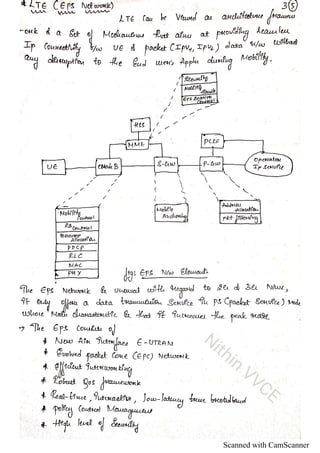 * LTE (EPS Network)
3 5
LTE Can be Viewed as architecture framew
-ork & a Set of Mechanisms that aim at providing Seamless
Ip Connectivity b/w UE & packet (IPV4, IPV6) data N/w without
any disruption to the End users Appln during Mobility.
Security
Mobility
HSS
MME
PCRF
UE
eNode B
S-GW
P-GW
Operator
Ip service
Mobility
Control
RB Control
Resource
Allocation
PDCP
RLC
MAC
PHY
Mobile
Anchoring
Address
Allocation
pkt filtering
fig: EPS N/w Elements
The EPS Network is unusual with regard to 2G & 3G N/w,
It only offers a data transmission Service in PS (packet Service) mode
whose Main characteristic is that it increases the peak rate.
→ The EPS Consists of
* New Air Interface E-UTRAN
* Evolved packet Core (EPC) Network
* Efficient Interworking
* Robust QoS framework
* Real-time, Interactive, low-latency true broadband
* policy Control Management
* High level of Security
Nithin VVCE
Scanned with CamScanner